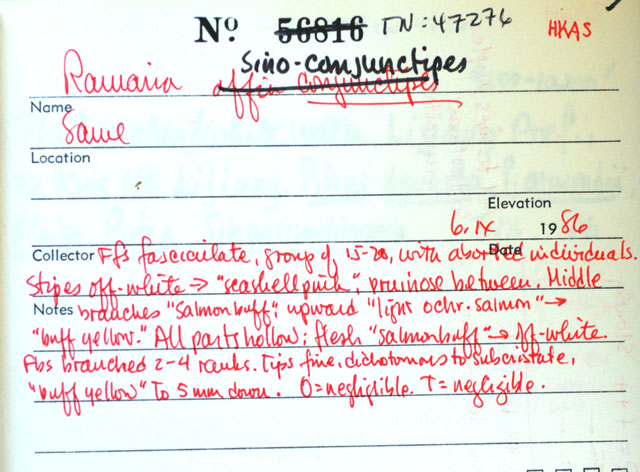 Nº 56816 TN: 47276 HKAS
Sino-conjunctipes
Ramaria affin conjunctipes
Name
Same
Location
Elevation
6. IX 1986
Collector Date
Ffs fasciculate, group of 15-20, with aborted individuals.
Stipes off-white → "seashell pink", pruinose between. Middle
Notes branches "salmon buff"; upward "light ochr. salmon" →
"buff yellow." All parts hollow; flesh "salmon buff" → off-white.
Fbs branched 2-4 ranks. Tips fine, dichotomous to subcristate,
"buff yellow" to 5 mm down. O = negligible. T = negligible.